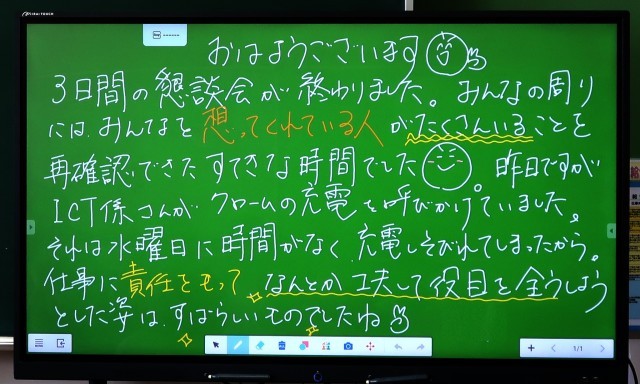 おはようございます
3日間の懇談会が終わりました。みんなの周り
には、みんなを想ってくれている人がたくさんいることを
再確認できたすてきな時間でした。昨日ですが
ICT係さんが、クロームの充電を呼びかけていました。
それは水曜日に時間がなく、充電しそびれてしまったから。
仕事に責任をもって なんとか工夫して役目を全うしよう
とした姿は、すばらしいものでしたね
1/1